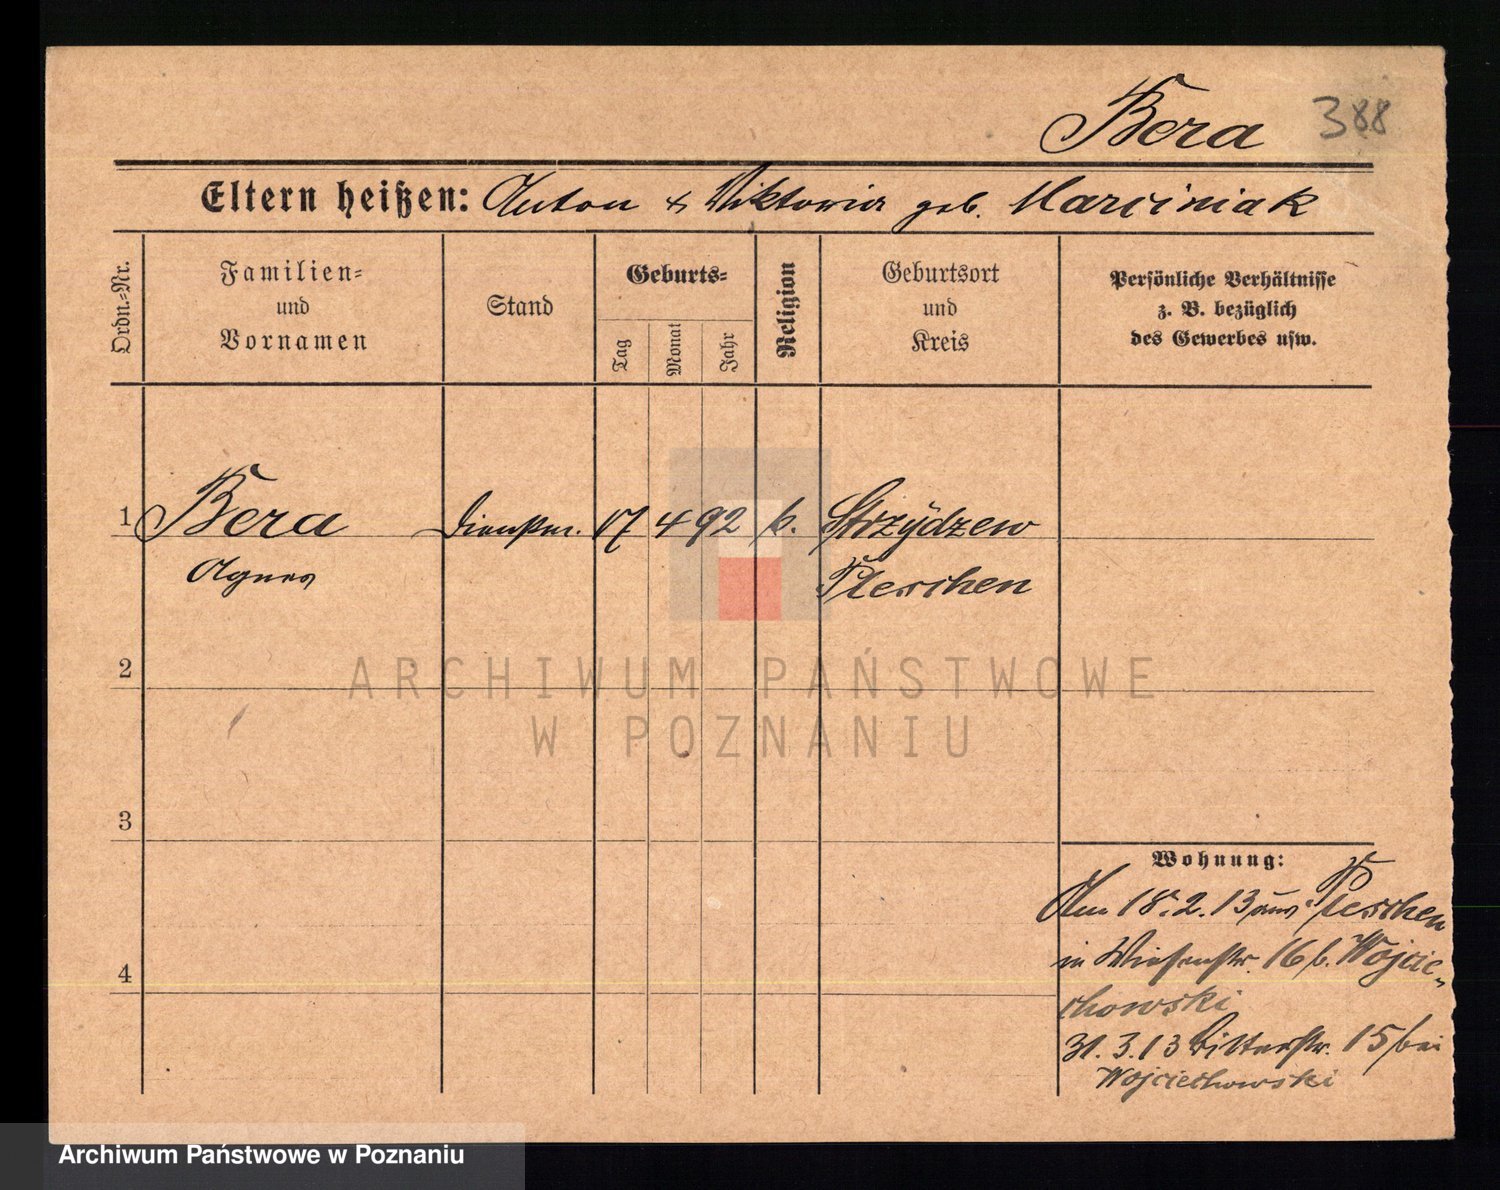 Bera 388
Eltern heißen: Anton & Viktoria geb. Marciniak
Ordn.-Nr.
Familien-
und
Vornamen
Stand
Geburts-
Tag
Monat
Jahr
Religion
Geburtsort
und
Kreis
Persönliche Verhältnisse
z. B. bezüglich
des Gewerbes usw.
1 Bera Dienstm. 17 4 92 k. Strzydzew
Agnes Pleschen
2
ARCHIWUM PAŃSTWOWE
W POZNANIU
3
Wohnung:
Am 18.2.13 aus Pleschen
in Wiesenstr. 16 b. Wojcie-
chowski
4
31.3.13 Ritterstr. 15 bei
Wojciechowski
Archiwum Państwowe w Poznaniu